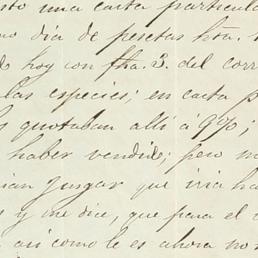 sto una carta particula
no dia de pesetas hta.
hoy con fha. 3. del corr
las especies; en carta p
quotaban alli á 9%;
haber vendido; pero m
que iria ha
y me dice, que para el
asi como le es ahora no